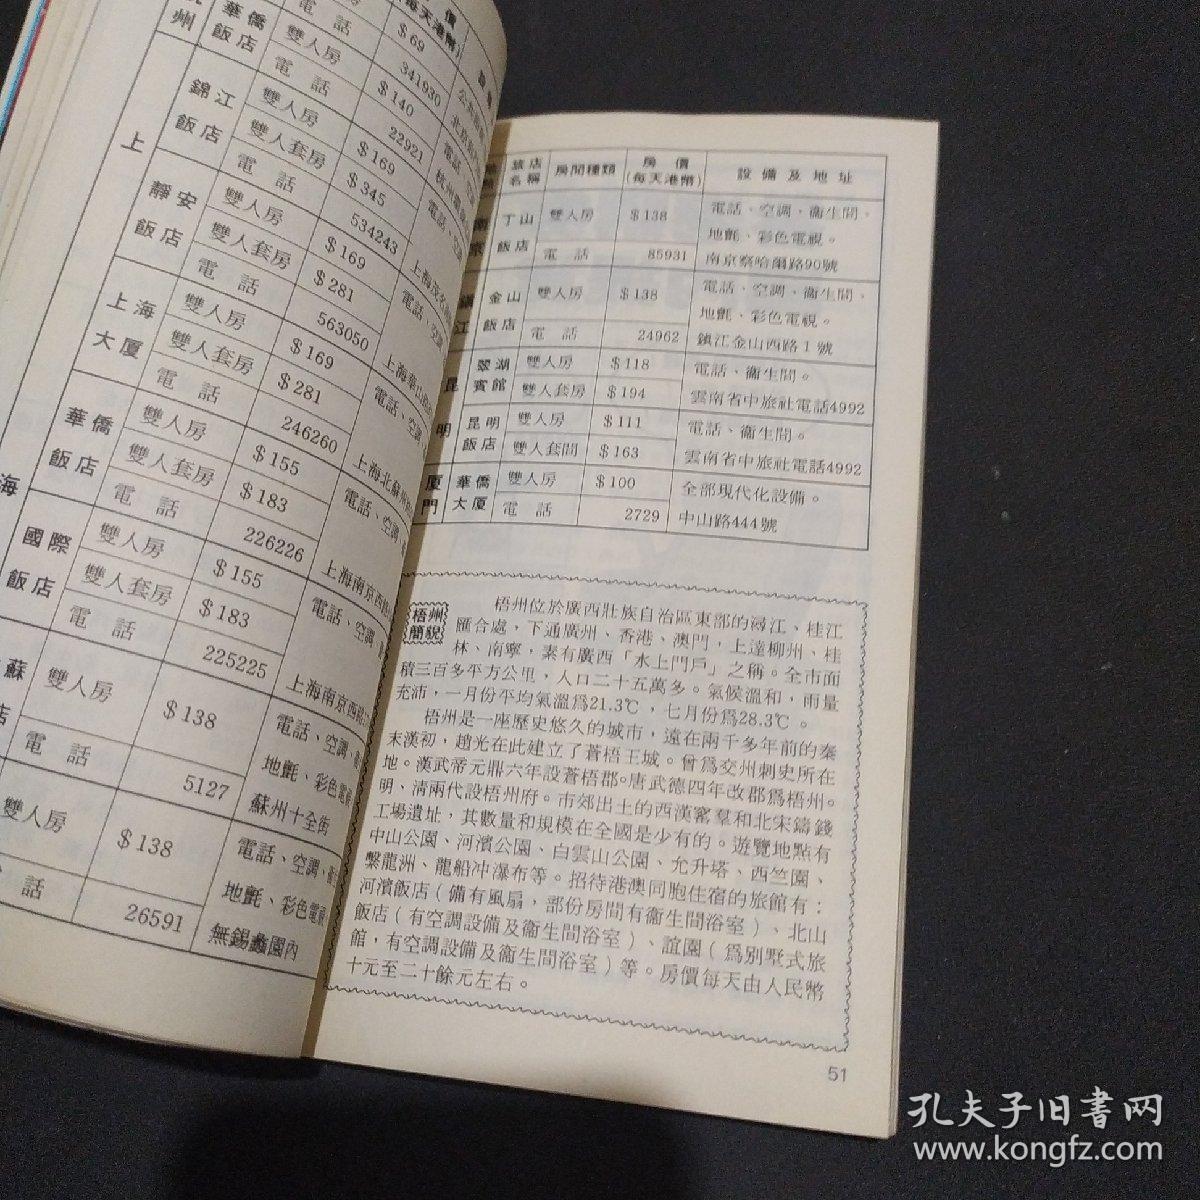 州
華僑
飯店
電話
$69
雙人房
341930
電話
$140
上
錦江
飯店
雙人房
22921
雙人套房
$169
電話
$345
靜安
飯店
雙人房
534243
雙人套房
$169
電話
$281
上海
大厦
雙人房
563050
雙人套房
$169
電話
$281
華僑
飯店
雙人房
246260
雙人套房
$155
電話
$183
海
國際
飯店
雙人房
226226
雙人套房
$155
電話
$183
225225
蘇
雙人房
$138
電話、空調、
地氈、彩色電視
電話
5127
蘇州十全街
雙人房
$138
電話、空調、
地氈、彩色電視
話
26591
無錫蠡園內
旅店
名稱
房間種類
房價
(每天港幣)
設備及地址
丁山
飯店
雙人房
$138
電話、空調、衞生間、
地氈、彩色電視。
電話
85931
南京察哈爾路90號
江
金山
飯店
雙人房
$138
電話、空調、衞生間、
地氈、彩色電視。
電話
24962
鎮江金山西路1號
昆
翠湖
賓館
雙人房
$118
電話、衞生間。
雙人套房
$194
雲南省中旅社電話4992
明
昆明
飯店
雙人房
$111
電話、衞生間。
雙人套間
$163
雲南省中旅社電話4992
厦
門
華僑
大厦
雙人房
$100
全部現代化設備。
電話
2729
中山路444號
梧州
簡貌
梧州位於廣西壯族自治區東部的潯江、桂江
匯合處，下通廣州、香港、澳門，上達柳州、桂
林、南寧，素有廣西「水上門戶」之稱。全市面
積三百多平方公里，人口二十五萬多。氣候溫和，雨量
充沛，一月份平均氣溫爲21.3℃，七月份爲28.3℃。
梧州是一座歷史悠久的城市，遠在兩千多年前的秦
末漢初，趙光在此建立了蒼梧王城。曾爲交州刺史所在
地。漢武帝元鼎六年設蒼梧郡。唐武德四年改郡爲梧州。
明、清兩代設梧州府。市郊出土的西漢窰羣和北宋鑄錢
工場遺址，其數量和規模在全國是少有的。遊覽地點有
中山公園、河濱公園、白雲山公園、允升塔、西竺園、
繫龍洲、龍船冲瀑布等。招待港澳同胞住宿的旅館有：
河濱飯店（備有風扇，部份房間有衞生間浴室）、北山
飯店（有空調設備及衞生間浴室）、誼園（爲別墅式旅
館，有空調設備及衞生間浴室）等。房價每天由人民幣
十元至二十餘元左右。
51
孔夫子旧书网
www.kongfz.com